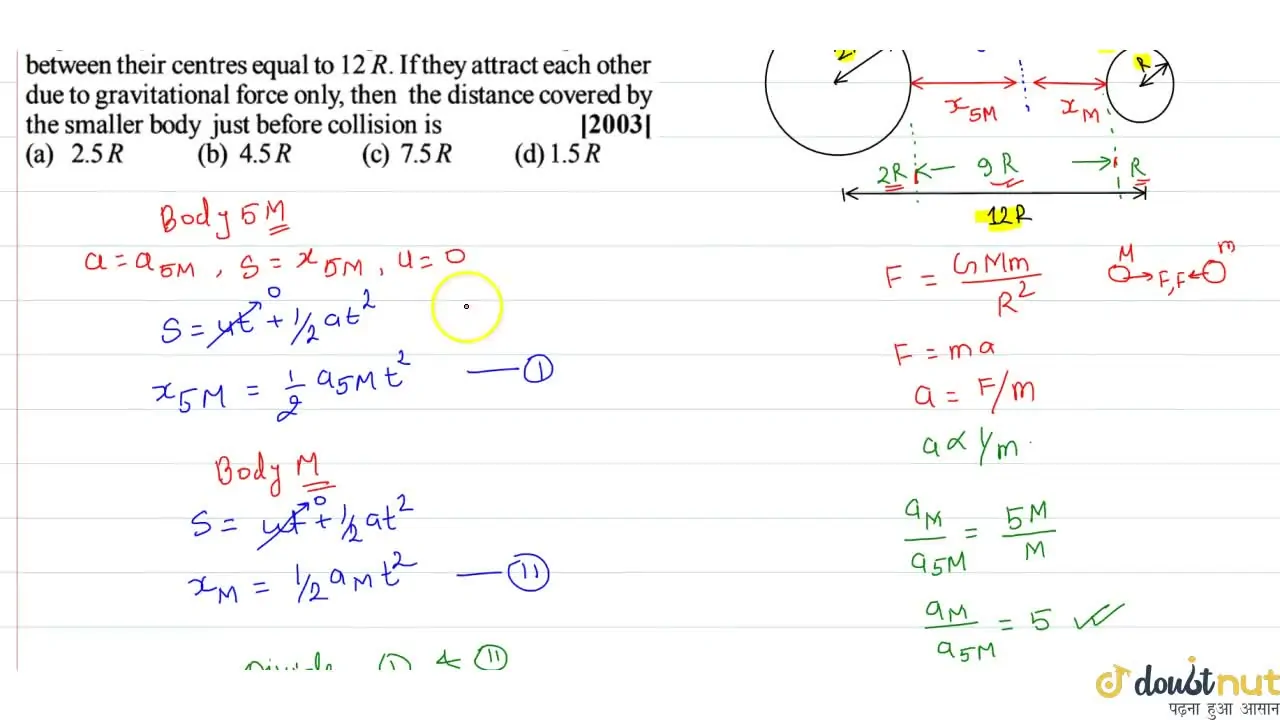 between their centres equal to 12 R. If they attract each other
due to gravitational force only, then the distance covered by
the smaller body just before collision is [2003]
(a) 2.5 R (b) 4.5 R (c) 7.5 R (d) 1.5 R
R
x5M xM
2R 9R R
12R
Body 5M
a = a5M , S = x5M , u = 0
S = ut 0 + 1/2 at²
x5M = 1/2 a5M t² — I
Body M
S = ut 0 + 1/2 at²
xM = 1/2 aM t² — II
Divide I & II
F = GMm/R²
M m
F, F
F = ma
a = F/m
a ∝ 1/m
aM/a5M = 5M/M
aM/a5M = 5
doubtnut
पढ़ना हुआ आसान